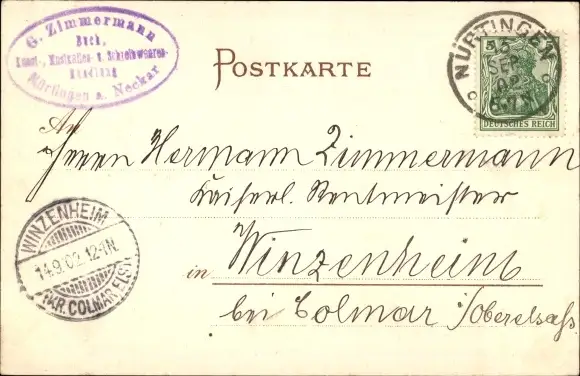 G. Zimmermann
Buch,
Kunst-, Musikalien- u. Schreibwaaren-
Handlung
Nürtingen a. Neckar
POSTKARTE
NÜRTINGEN
SEP
02
5
DEUTSCHES REICH
An
Herrn Hermann Zimmermann
Kaiserl. Rentmeister
in Winzenheim
bei Colmar i/Oberelsaß.
WINZENHEIM
14.9.02.12-1N.
(KR. COLMAR ELS)